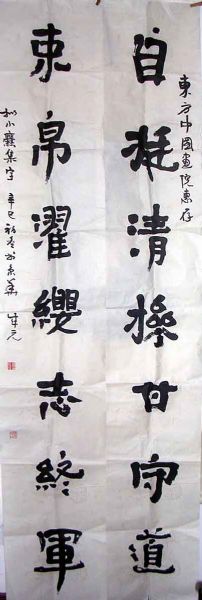 東方中國畫院惠存
自挺清操甘守道
束帛濯纓志終軍
拟小爨集字 辛巳初春於京華